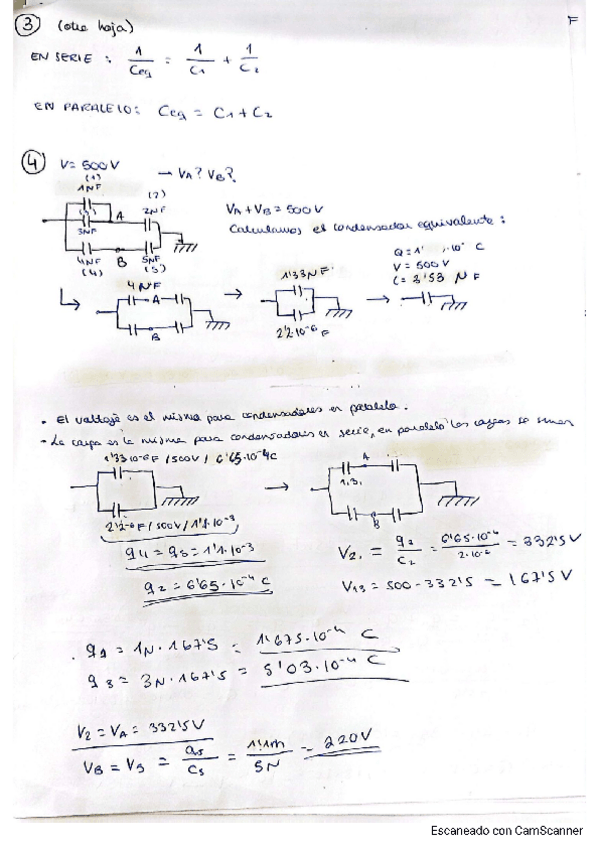 ③ (otra hoja)
F
EN SERIE : 1/Ceq = 1/C1 + 1/C2
EN PARALELO: Ceq = C1 + C2
④ V = 500 V → VA? VB?
(1)
1NF
(2)
2NF
A
3NF
4NF
(4)
B
5NF
(5)
VA + VB = 500 V
Calculamos el condensador equivalente :
4NF
A
B
→
1'33NF
2'2·10⁻⁶ F
→
V = 500 V
C = 3'53 NF
· El voltaje es el mismo para condensadores en paralelo.
- La carga es la misma para condensadores en serie, en paralelo las cargas se suman
1'33 10⁻⁶ F / 500V / 6'65·10⁻⁴C
2'2⁻⁶ F / 500V / 1'1·10⁻³
→
A
1,3.
B
q4 = q5 = 1'1·10⁻³
q2 = 6'65·10⁻⁴ C
V2 = q2/C2 = 6'65·10⁻⁴/2·10⁻⁶ = 332'5V
V13 = 500 - 332'5 = 167'5 V
q1 = 1N · 167'5 = 1'675·10⁻⁴ C
q3 = 3N · 167'5 = 5'03·10⁻⁴ C
V2 = VA = 332'5V
VB = V5 = q5/C5 = 1'1m/5N = 220V
Escaneado con CamScanner